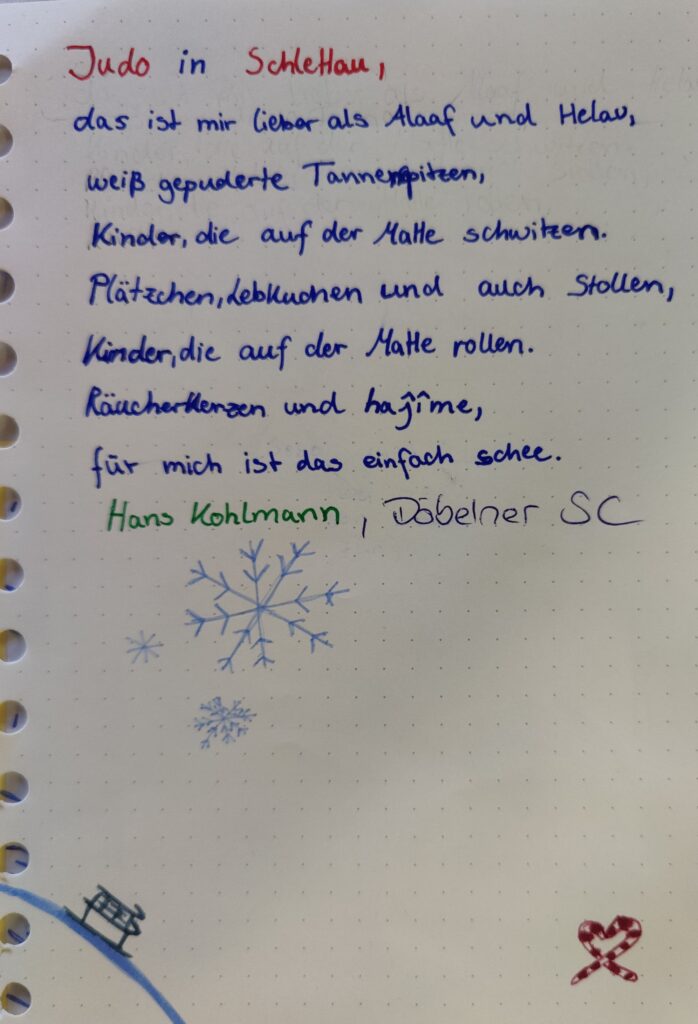 Judo in Schlettau,
das ist mir lieber als Alaaf und Helau,
weiß gepuderte Tannenspitzen,
Kinder, die auf der Matte schwitzen.
Plätzchen, Lebkuchen und auch Stollen,
Kinder, die auf der Matte rollen.
Räucherkerzen und haĵîme,
für mich ist das einfach schee.
Hans Kohlmann, Döbelner SC